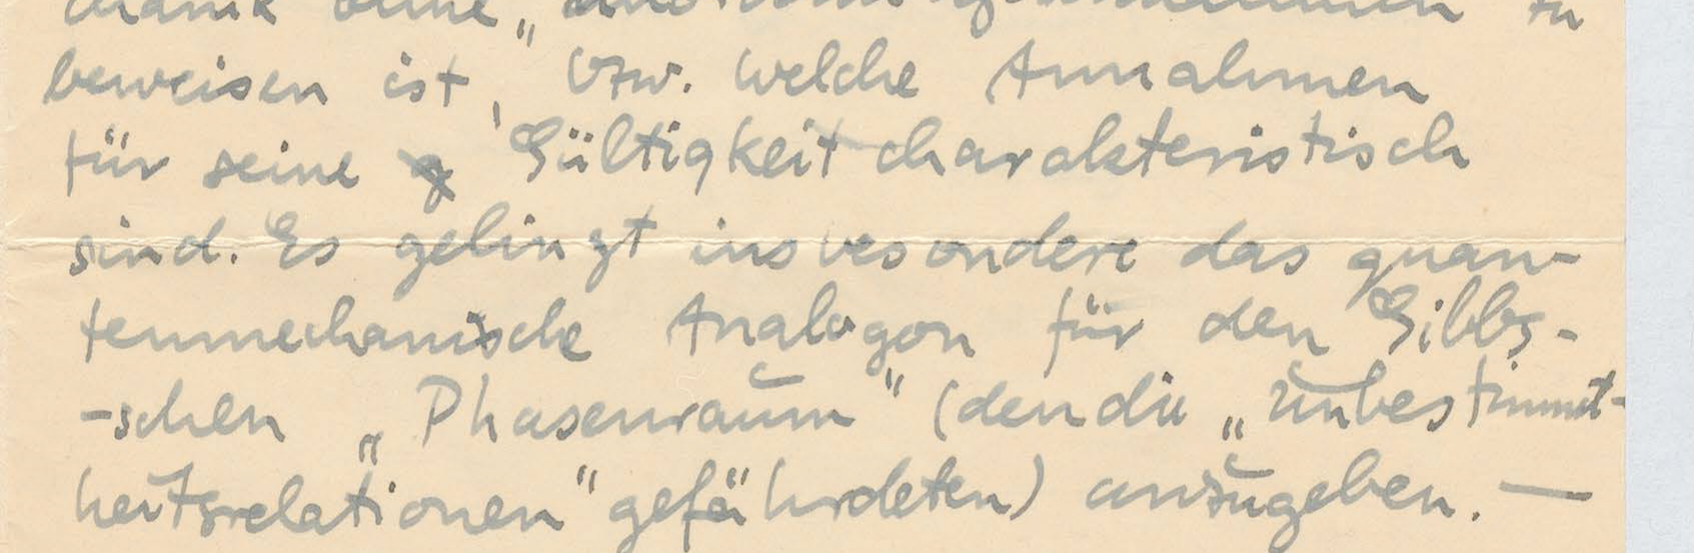 chanik ohne „
zu
beweisen ist, bzw. welche Annahmen
für seine Gültigkeit charakteristisch
sind. Es gelingt insbesondere das quan-
tenmechanische Analogon für den Gibbs-
-schen „Phasenraum" (den die „Unbestimmt-
heitsrelationen" gefährdeten) anzugeben. —